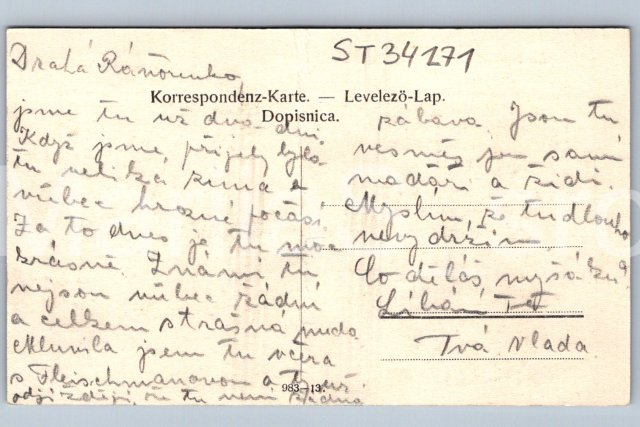 ST34171
Drahá
Korrespondenz-Karte. — Levelező-Lap.
Dopisnica.
jsme tu už dva dni.
Když jsme přijely byla
tu veliká zima a
vůbec hrozné počasí
Za to dnes je tu moc
krásně. Známí tu
nejsou vůbec žádní
a celkem strašná nuda
Mluvila jsem tu včera
s Fleischmanovou a ti už
odjíždějí, že tu není žádná
zábava. Jsou tu
vesměs jen samí
maďáři a židi.
Myslím, že tu dlouho
nevydržím
Co děláš, myšáku?
Líbá Tě
Tvá Vlada.
983—13.